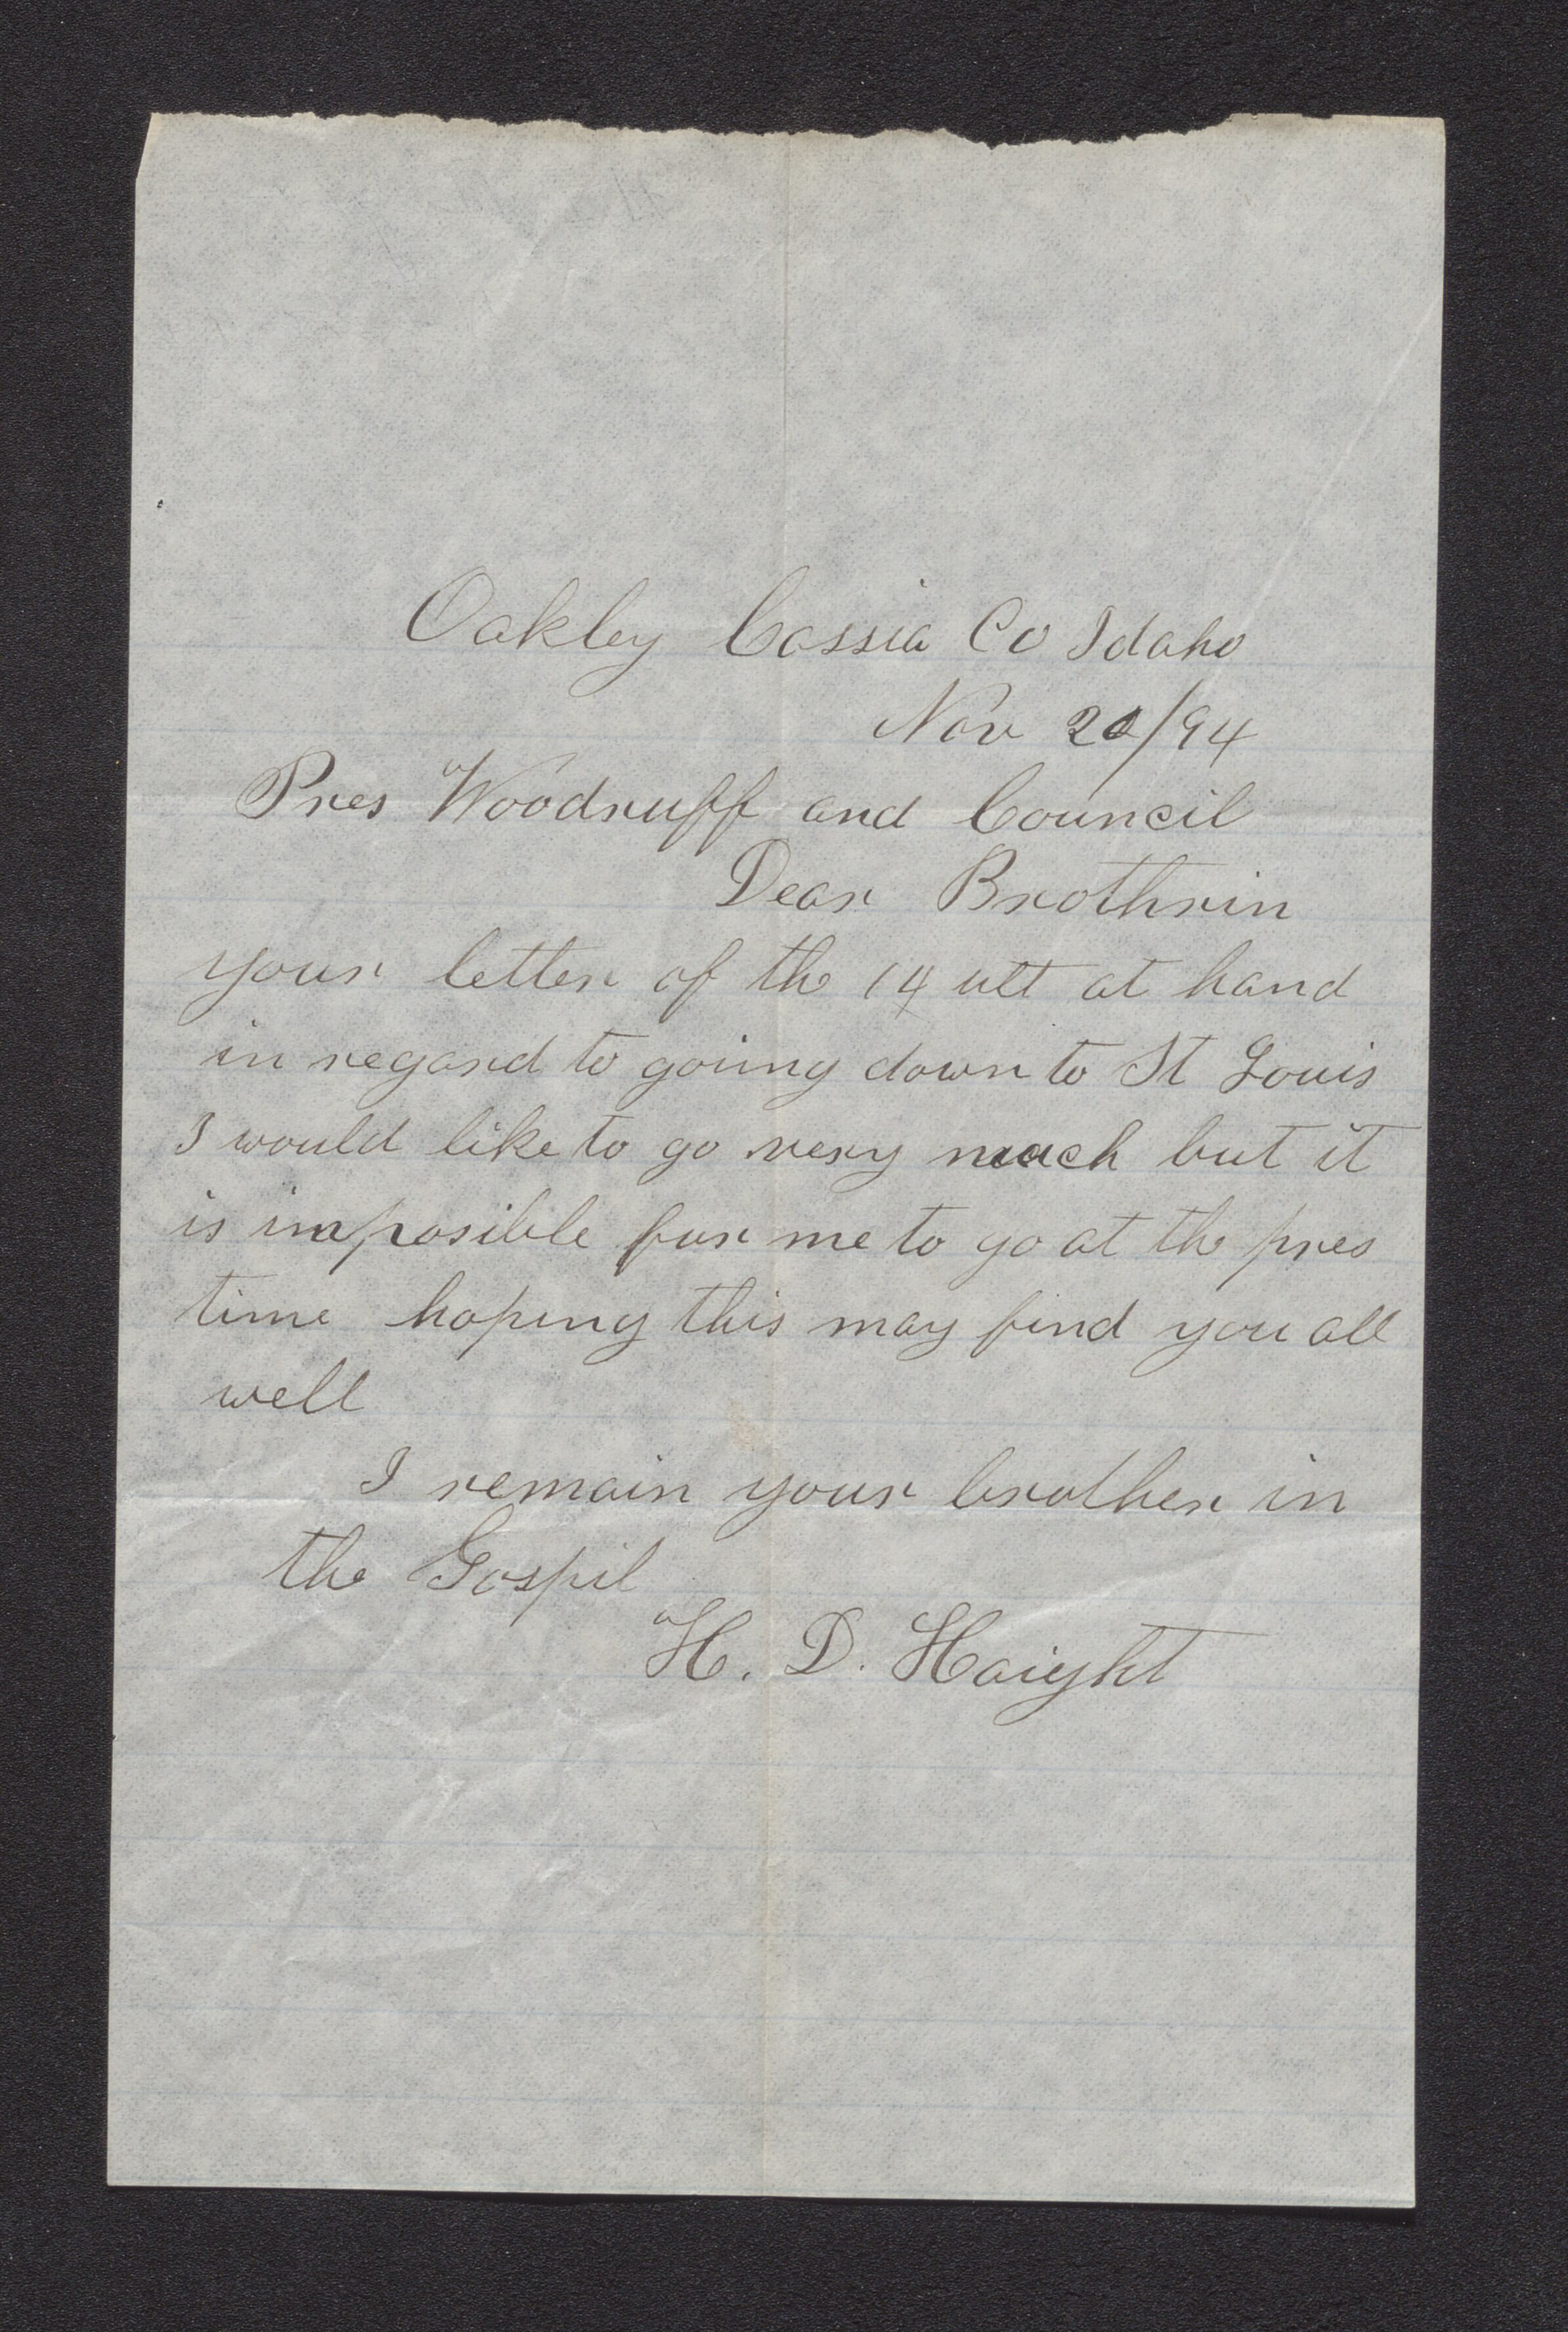 Oakley Cassia Co Idaho
Nov 20/94
Pres Woodruff and Council
Dear Brothrin
your letter of the 14 ult at hand
in regard to going down to St Louis
I would like to go very much but it
is imposible fur me to go at the pres
time hoping this may find you all
well
I remain your brother in
the Gospil
H. D. Haight